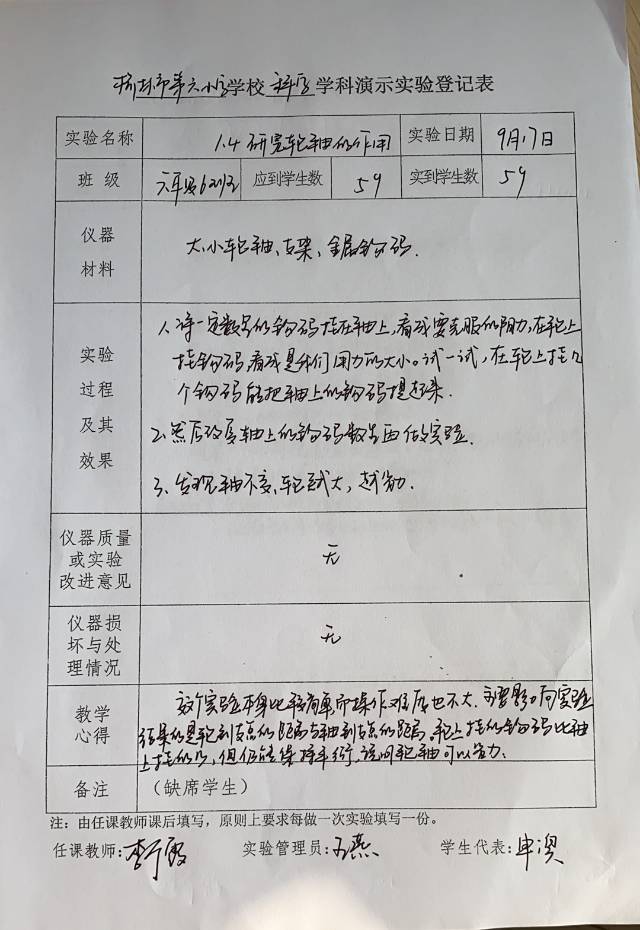 市第六小学校 科学 学科演示实验登记表
实验名称 1.4 研究轮轴的作用 实验日期 9月17日
班 级 六年级 应到学生数 59 实到学生数 59
仪器材料 大小轮轴、支架、金属钩码.
实验过程及其效果
1、将一定数量的钩码挂在轴上,看成要克服的阻力,在轮上
挂钩码,看成是我们用力的大小。试一试,在轮上挂几
个钩码能把轴上的钩码提起来.
2、然后改变轴上的钩码数量再做实验.
3、发现轴不变,轮越大,越省力.
仪器质量或实验改进意见 无
仪器损坏与处理情况 无
教学心得
这个实验本身比较简单而操作难度也不大.主要影响实验
结果的是轮到支点的距离与轴到支点的距离.轮上挂的钩码比轴
上挂的少,但仍能保持平衡,说明轮轴可以省力.
备注 (缺席学生)
注:由任课教师课后填写,原则上要求每做一次实验填写一份。
任课教师:李 霞 实验管理员:王燕 学生代表:申